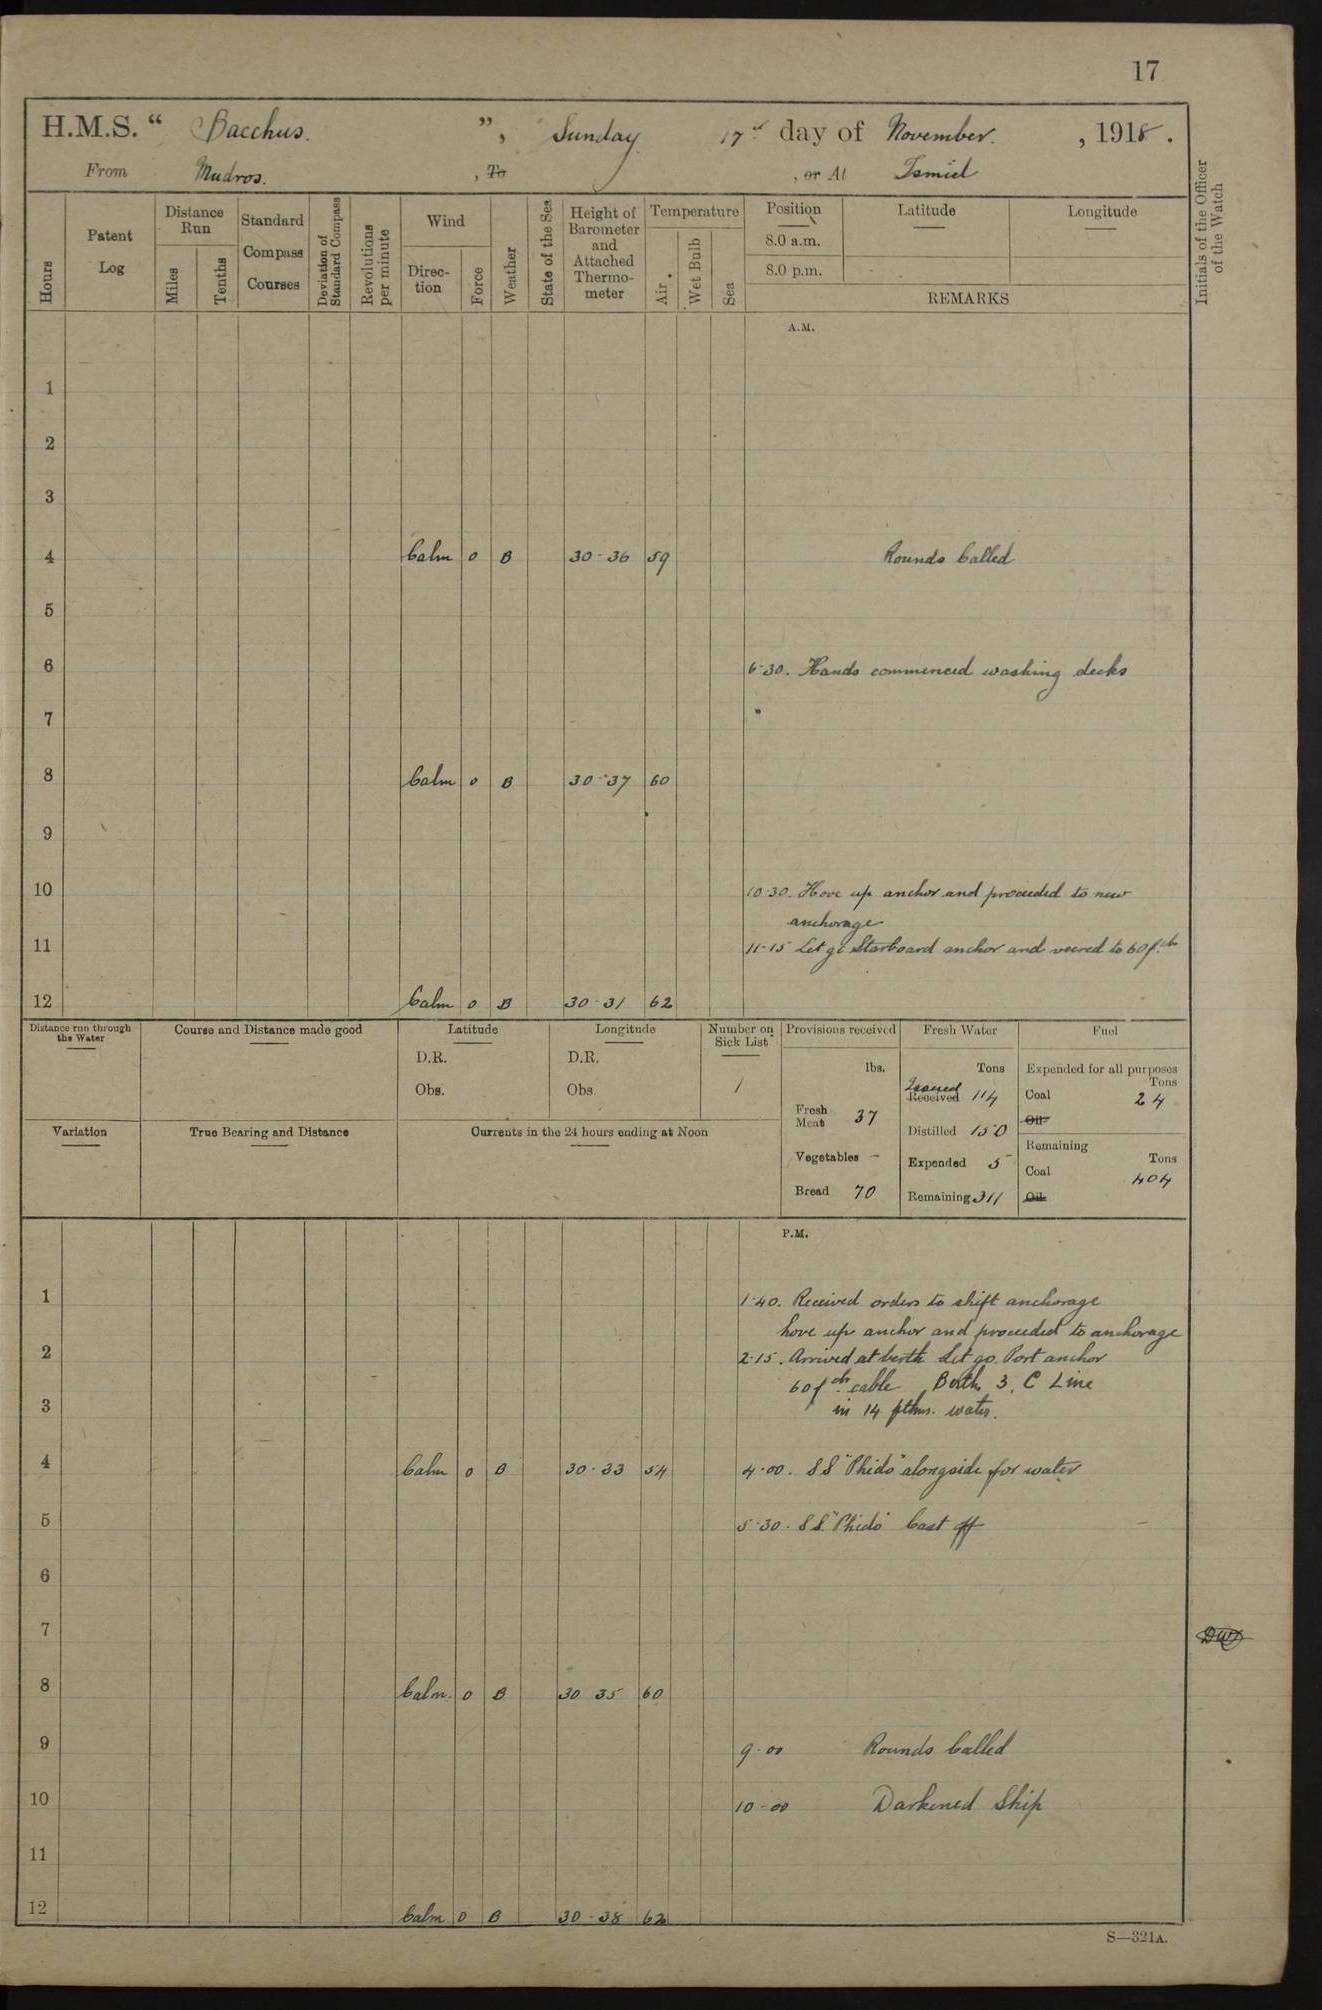 17
H.M.S. “ Bacchus. ”, Sunday 17th day of November. , 1918.
From Mudros. , To , or At Ismid
Hours
Patent Log
Distance Run
Miles
Tenths
Standard Compass Courses
Deviation of Standard Compass
Revolutions per minute
Wind
Direction
Force
Weather
State of the Sea
Height of Barometer and Attached Thermometer
Temperature
Air
Wet Bulb
Sea
Position
8.0 a.m.
8.0 p.m.
Latitude
Longitude
REMARKS
Initials of the Officer of the Watch
A.M.
1
2
3
4 Calm 0 B 30-36 59 Rounds Called
5
6 6-30. Hands commenced washing decks
7
8 Calm 0 B 30-37 60
9
10 10-30. Hove up anchor and proceeded to new
anchorage
11 11-15 Let go Starboard anchor and veered to 60 fths
12 Calm 0 B 30-31 62
Distance run through the Water
Course and Distance made good
Latitude
D.R.
Obs.
Longitude
D.R.
Obs
Number on Sick List
1
Provisions received
lbs.
Fresh Meat 37
Vegetables -
Bread 70
Fresh Water
Tons
Issued
Received 114
Distilled 150
Expended 5
Remaining 311
Fuel
Expended for all purposes
Tons
Coal 24
Oil
Remaining
Tons
Coal 404
Oil
Variation
True Bearing and Distance
Currents in the 24 hours ending at Noon
P.M.
1 1-40. Received orders to shift anchorage
hove up anchor and proceeded to anchorage
2 2-15. Arrived at berth Let go Port anchor
60 fths cable Berth 3, C Line
3 in 14 fthms. water.
4 Calm 0 B 30-33 54 4-00. SS "Phido" alongside for water
5 5-30. SS. "Phido" Cast off
6
7
8 Calm. 0 B 30 35 60
9 9-00 Rounds Called
10 10-00 Darkened Ship
11
12 Calm 0 B 30-38 62
S—321A.